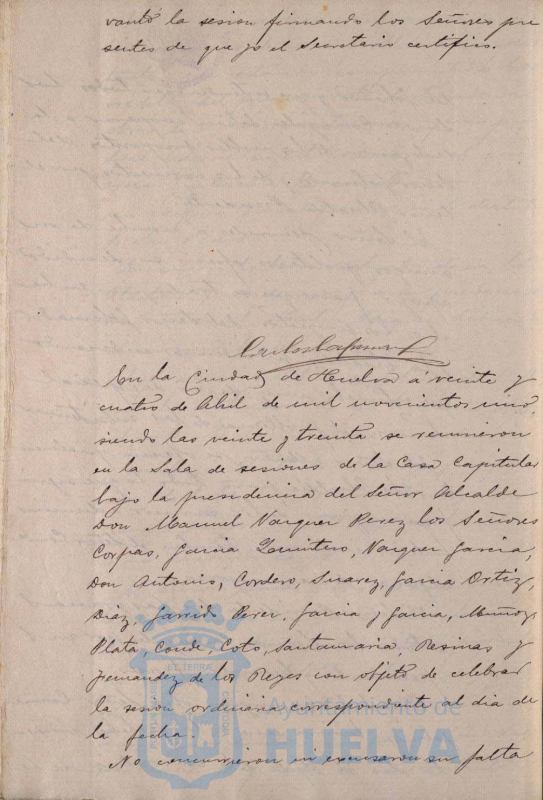 vantó la sesion firmando los Señores pre
sentes de que yo el Secretario certifico.
En la Ciudad de Huelva á veinte y
cuatro de Abril de mil novecientos uno,
siendo las veinte y treinta se reunieron
en la Sala de sesiones de la Casa Capitular
bajo la presidencia del Señor Alcalde
Don Manuel Vazquez Perez los Señores
Corpas, Garcia Quintero, Vazquez Garcia,
Don Antonio, Cordero, Suarez, Garcia Ortiz,
Diaz, Garrido Perez, Garcia y Garcia, Muñoz,
Plata, Conde, Coto, Santamaria, Resinas y
Fernandez de los Reyes con objeto de celebrar
la sesion ordinaria correspondiente al dia de
la fecha.
No concurrieron ni excusaron su falta
Ayuntamiento de
HUELVA